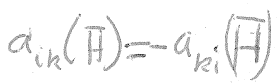 a_{ik}(\overline{H})=-a_{ki}(\overline{H})